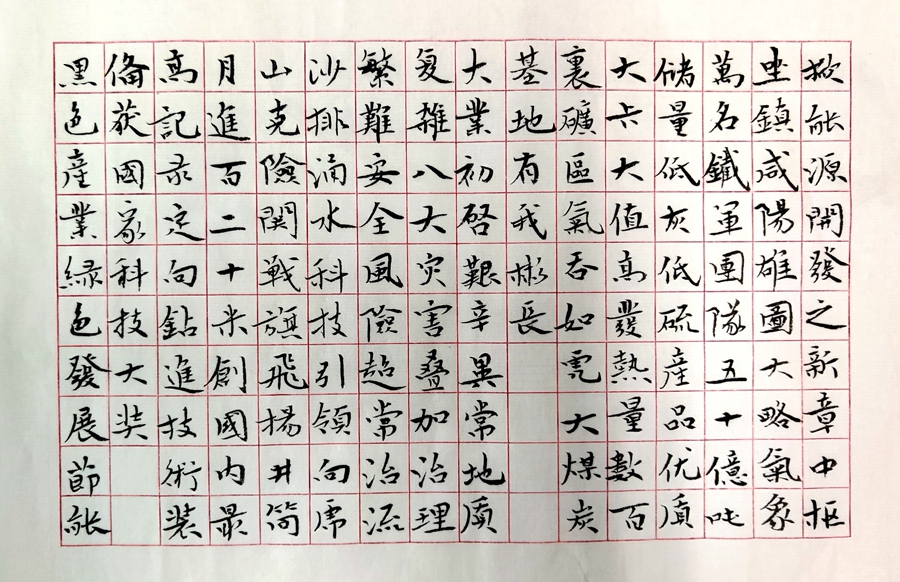 掀能源開發之新章中枢
坐鎮咸陽雄圖大略氣象
萬名鐵軍團隊五十億吨
储量低灰低硫産品优质
大六大值高發熱量數百
裏礦區氣吞如虎大煤炭
基地有我彬長
大業初啓艱辛異常地质
复雜八大灾害叠加治理
繁難安全風險超常治流
沙排涌水科技引領向虎
山克險関戰旗飛揚井筒
月進百二十米創國内最
高記录定向鉆進技術装
俻获國家科技大奖
黑色産業緑色發展節能